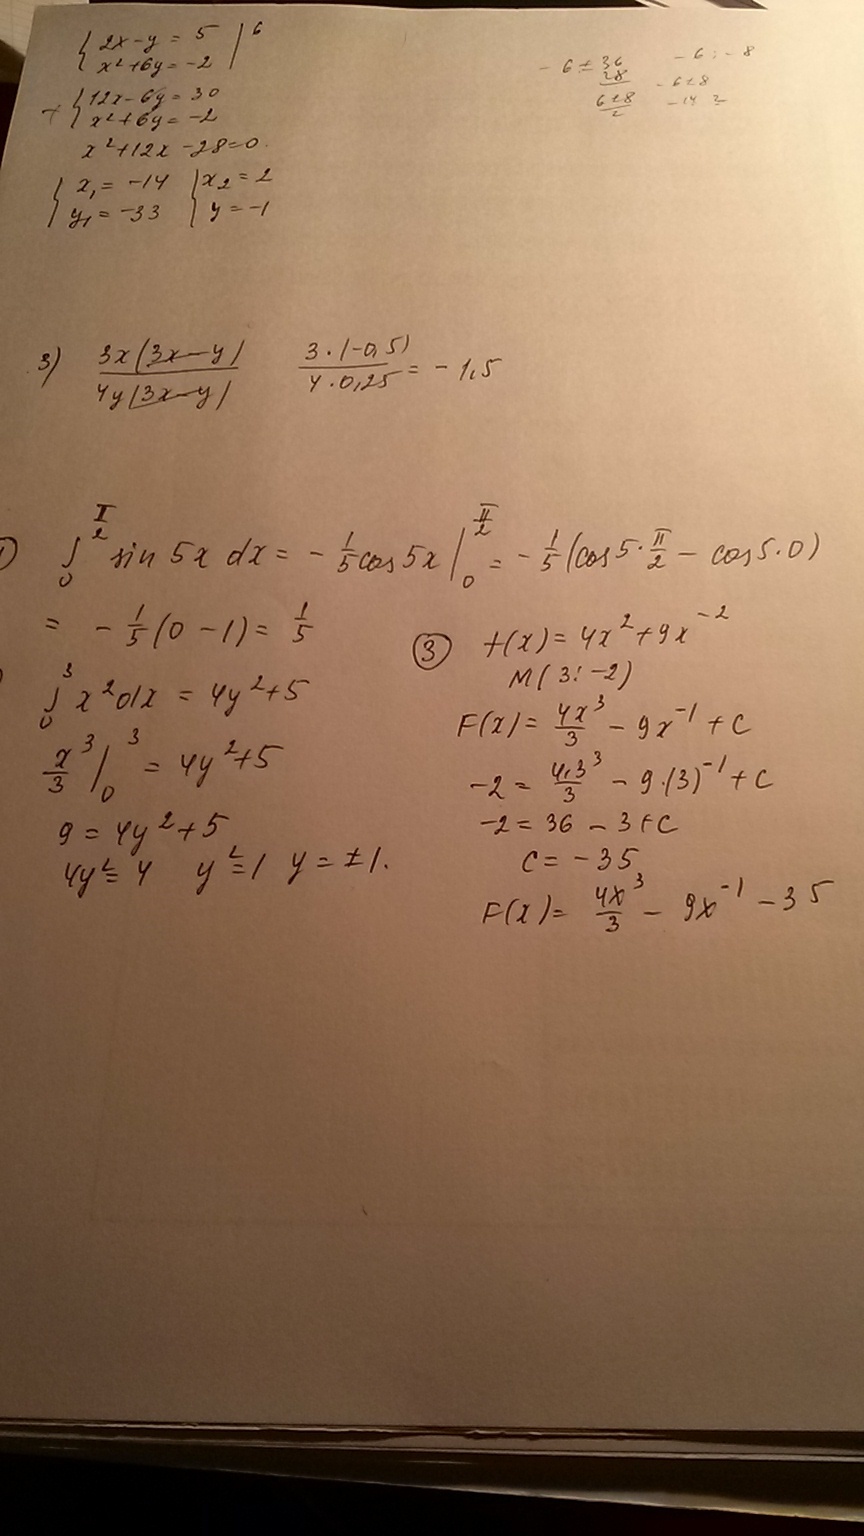 { 2x-y = 5 | 6
x²+6y = -2
+ { 12x-6y = 30
x²+6y = -2
x²+12x-28=0.
{ x₁ = -14 { x₂ = 2
y₁ = -33 y = -1
-6 ± 36 -6 : -8
28 -6±8
6±8 -14 2
2
3) 3x(3x-y) / 4y(3x-y) 3·(-0,5) / 4·0,25 = -1,5
∫₀^(π/2) sin 5x dx = -1/5 cos 5x |₀^(π/2) = -1/5 (cos 5·π/2 - cos 5·0)
= -1/5 (0-1) = 1/5
∫₀³ x² dx = 4y²+5
x³/3 |₀³ = 4y²+5
9 = 4y²+5
4y² = 4 y² = 1 y = ±1.
③ f(x) = 4x²+9x⁻²
M(3; -2)
F(x) = 4x³/3 - 9x⁻¹ + C
-2 = 4·3³/3 - 9·(3)⁻¹ + C
-2 = 36 - 3 + C
C = -35
F(x) = 4x³/3 - 9x⁻¹ - 35